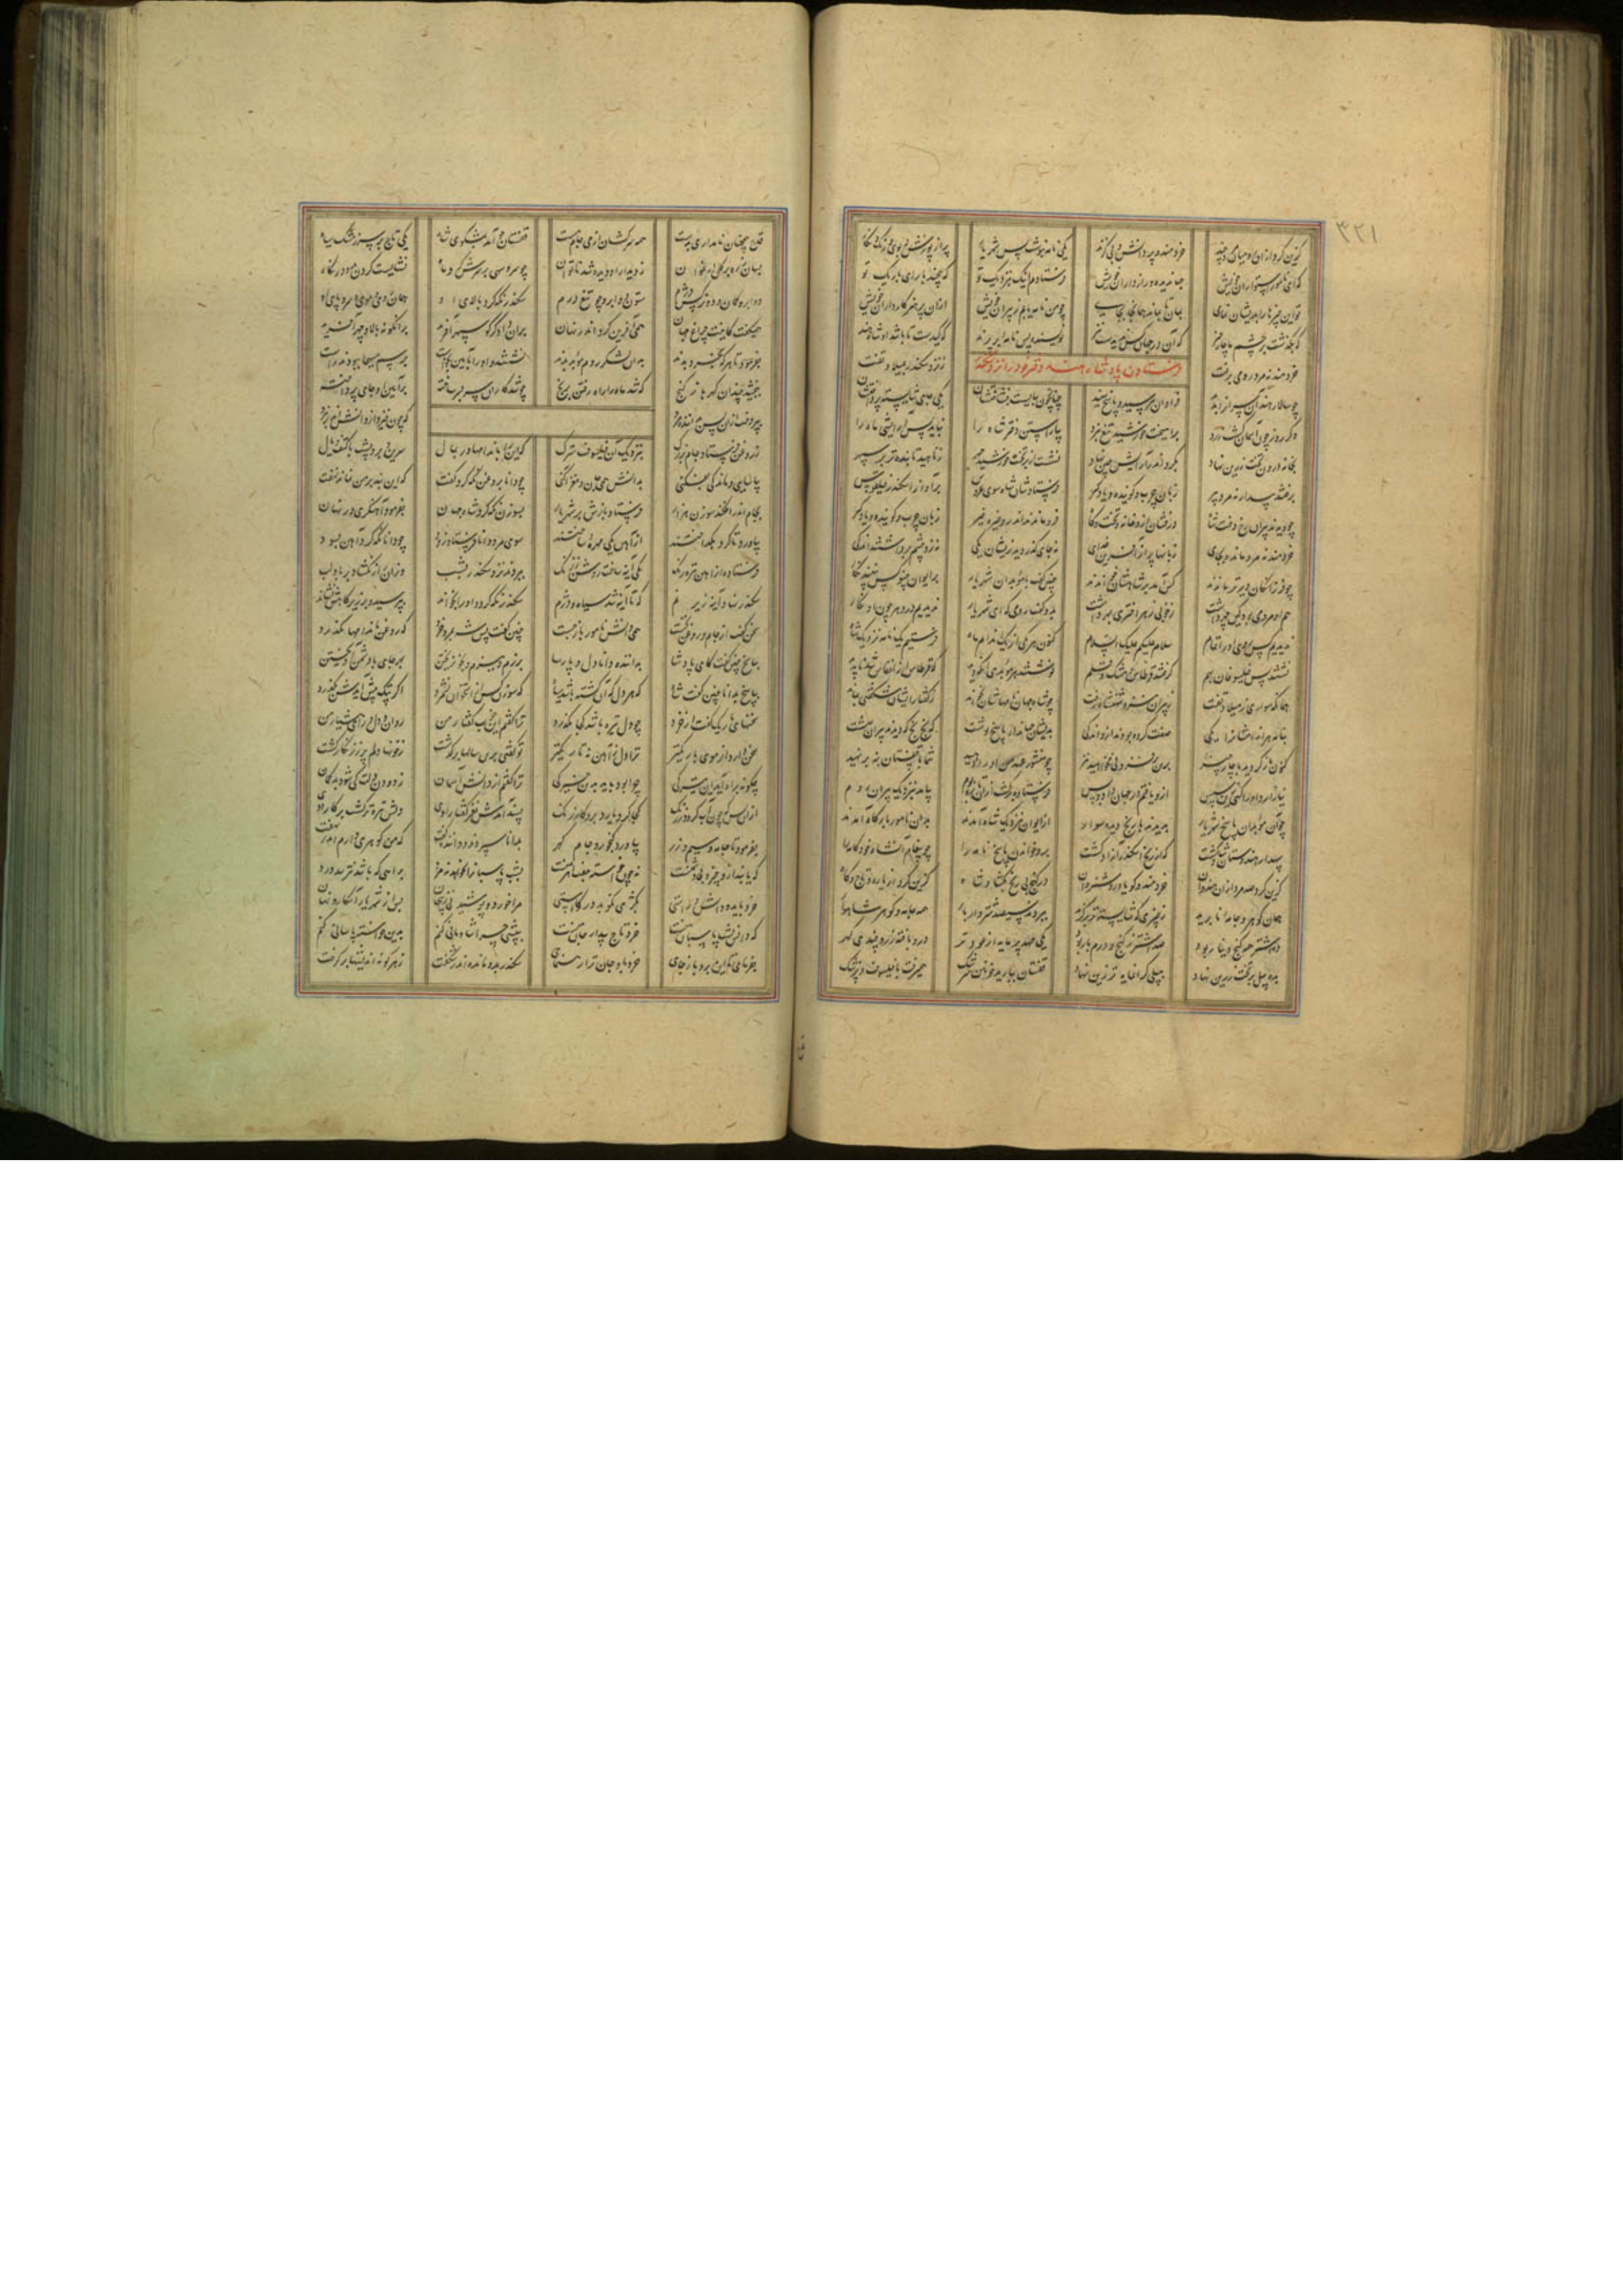 گزین کرد ازان رومیان مرد چند خردمند و پردانش و بی گزند یکی نامه بنوشت پس شهریار پر از پوزش و بوی و رنگ و نگار
که ای نامور استواران خویش جهاندیده و رازداران خویش فرستادم اینک بنزدیک تو که پیچند با رای باریک تو
تو این چیزها را بدیشان نمای چو من نامه یابم ز پیران خویش ازان پرهنر کارداران خویش
که بگذشت بر چشم ما چار چیز که آن در جهان کس ندیدست نیز نویسند پس نامه را بر پرند که کیدست تا باشد او شاه هند
خردمند نه مرد رومی برفت ز نزد سکندر بمیلاد تفت
فرستادن پادشاه هند دختر خود را نزد سکندر
چو سالار هند آن سران را بدید فراوان بپرسید و پاسخ شنید چنانچون ببایست بنواختشان یکی جای شایسته پرداختشان
دگر روز چون آسمان گشت زرد برآهیخت خورشید تیغ نبرد بیاراستن دختر شاه را نباید پس آرایشی ماه را
بخانه درون تخت زرین نهاد بگرد اندر آرایش چین نهاد نشست از بر تخت خورشید چهر ز ناهید تابنده تر بر سپهر
برفتند بیدار نه مرد پیر زبان چرب و گوینده و یادگیر فرستادشان شاه سوی عروس بر آواز اسکندر فیلقوس
چو دیدند پیران رخ دخت شاه درفشان ازو خانه و تخت و گاه فرو ماندند اندرو خیره خیر زبان چرب و گوینده و یادگیر
خردمند نه مرد مانده بجای زبانها پر از آفرین خدای نه جای گذر دید ازیشان یکی نه زو چشم برداشتند اندکی
چو فرزانگان دیرتر ماندند کس آمد بر شاهشان خواندند چنین گفت با موبدان شهریار بر ایوان چنو کس نبیند نگار
هم او مردمی بود کین چهر داشت ز خوبی ز هر اختری بهر داشت بدو گفت رومی که ای شهریار ندیدیم در دهر چون او نگار
سلام علیکم علیک السلام کنون هر یکی از یک اندام ماه فرستیم یک نامه نزدیک شاه
نشستند پس فیلسوفان بهم گرفتند قرطاس و مشک و قلم نوشتند هر موبدی آنچه دید که قرطاس از انقاس شد ناپدید
سواری ز میلاد تفت چو شاه جهان نامهاشان بخواند ز گفتار ایشان شگفتی بماند
صفت کرده بودند ازو اندکی بدیشان جهاندار پاسخ نوشت که بخ بخ که دیدند پیران بهشت
کنون بازگردید با چار چیز برین بر فزونی مخواهید نیز چو منشور و عهد من او را دهید شما با فغستان بنه بر نهید
نیازارد او را کسی زین سپس ازو یافتم در جهان داد و بس فرستاده برگشت ازان مرز و بوم بیامد بنزدیک پیران روم
چو آن موبدان پاسخ شهریار بدیدند با رنج دیده سوار از ایوان بنزدیک شاه آمدند بدان نامور بارگاه آمدند
سپهدار هندوستان شاد گشت که از رنج اسکندر آزاد گشت برو خواندند پاسخ نامه را چو پیغام آن شاه خودکامه را
گزین کرد صد مرد از هندوان خردمند و گویا و روشن روان در گنج بی رنج بگشاد شاه گزین کرد ازان یاره و تاج و گاه
همان گوهر و جامه نابرید ز چیزی که شایسته تر برگزید ببردند سیصد شتروار بار همه جامه و گوهر شاهوار
دو صد اشتر همه گنج و دینار بود صد اشتر ز گنج درم بار بود یکی مهد پرمایه از عود تر درو بافته زر و چندی گهر
بده پیل بر تخت زرین نهاد بپیلی گرانمایه تر زین نهاد فغستان ببارید خونین سرشک همی رفت با فیلسوف و پزشک
قدح همچنان نامداری بدست همه سرکشان از می جام مست فغستان چو آمد بمشکوی شاه یکی تاج بر سر ز مشک سیاه
بسان زره بر گل ارغوان ز دیدار او دیده شد ناتوان چو سرو سهی بر سرش گرد ماه نشایست کردن بدو در نگاه
دو ابرو کمان و دو نرگس دژم ستون دو ابرو چو تیغ درم سکندر نگه کرد بالای او همان موی و روی و سر و پای او
همی گفت کاینت چراغ جهان همی آفرین کرد اندر نهان بدان دادگر کو سپهر آفرید بر آنگونه بالا و چهر آفرید
بفرمود تا هر که بخرد بدند بدان لشکر روم موبد بدند نشستند و او را بآیین بخواست برسم مسیحا و پیوند راست
ببخشید چندان گهرها ز گنج که شد ماه را راه رفتن برنج چو شد کار آن سرو بن ساخته بر آیین او جای پرداخته
بپردخت ازان پس بداننده مرد که چون خیزد از دانش اندر نبرد
ز روغن فرستاد جام بزرگ بنزدیک آن فیلسوف سترگ که این را باندامها در بمال سرین و بر و پشت با کتف و یال
بیاسای و ماندگی بفکنی بدانش مرا جان و مغز آگنی چو دانا بروغن نگه کرد گفت که این بند بر من نماند نهفت
بجام اندر افکند سوزن هزار فرستاد بازش بر شهریار بسوزن نگه کرد شاه جهان بفرمود آهنگری در نهان
بیاورد و تا گرد بگداختند از آهن یکی مهره ساختند سوی مرد دانا فرستاد زود چو دانا نگه کرد و آهن بسود
فرستاده از آهن تیره رنگ یکی آینه ساخت روشن ز زنگ ببردند نزد سکندر بشب وزان راز نگشاد بر باد لب
سکندر نهاد آینه زیر نم که تا آینه شد سیاه و دژم سکندر نگه کرد و او را بخواند بپرسید و بر زیرگاهش نشاند
سخن گفت از جام روغن نخست همی دانش نامور بازجست که روغن باندامها بگذرد
بپاسخ چنین گفت کای پادشا که داننده دانادل و پارسا بهر جای با دشمن آویختن
بپاسخ بدانا چنین گفت شاه که هر دل که آن گشته باشد سیاه
سخنهای باریک چو دل تیره باشد کجا بگذرد ترا گفتم این خوب گفتار من روان و دل و رای هشیار من
سخن دارد از موی باریکتر ترا دل ز آهن نه تاریکتر تو گفتی برین سالیان برگذشت ز خونها دلم پر ز زنگار گشت
چگونه براه آید این تیرگی ترا گفتم از دانش آسمان زدودن دلت کی شود بدگمان
ازان پس که چون آب گردد برنگ کجا کرد باید برو کار تنگ پسند آمدش نغز گفتار اوی دلش تیزتر گشت بر کار اوی
بفرمود تا جامه و سیم و زر بیاورد گنجور و جام گهر بدانا سپردند و دانا بگفت که من گوهری دارم اندر نهفت
که یابند ازو چیز و بی دشمنست نه چون خواسته جفت آهرمنست بشب پاسبانان نخواهند مزد براهی که باشد نترسد ز دزد
خرد باید و دانش و راستی که کژی بکوبد در کاستی مرا خورد و پوشیدنی زین جهان بس از شهریار آشکار و نهان
که دانش بشب پاسبان منست خرد تاج بیدار جان منست ببیشی چرا شادمانی کنم برین خواسته پاسبانی کنم
بفرمای تا این برد باز جای خرد باد جان ترا رهنمای سکندر بدو مانده اندر شگفت ز هر گونه اندیشها برگرفت
۳۲۱